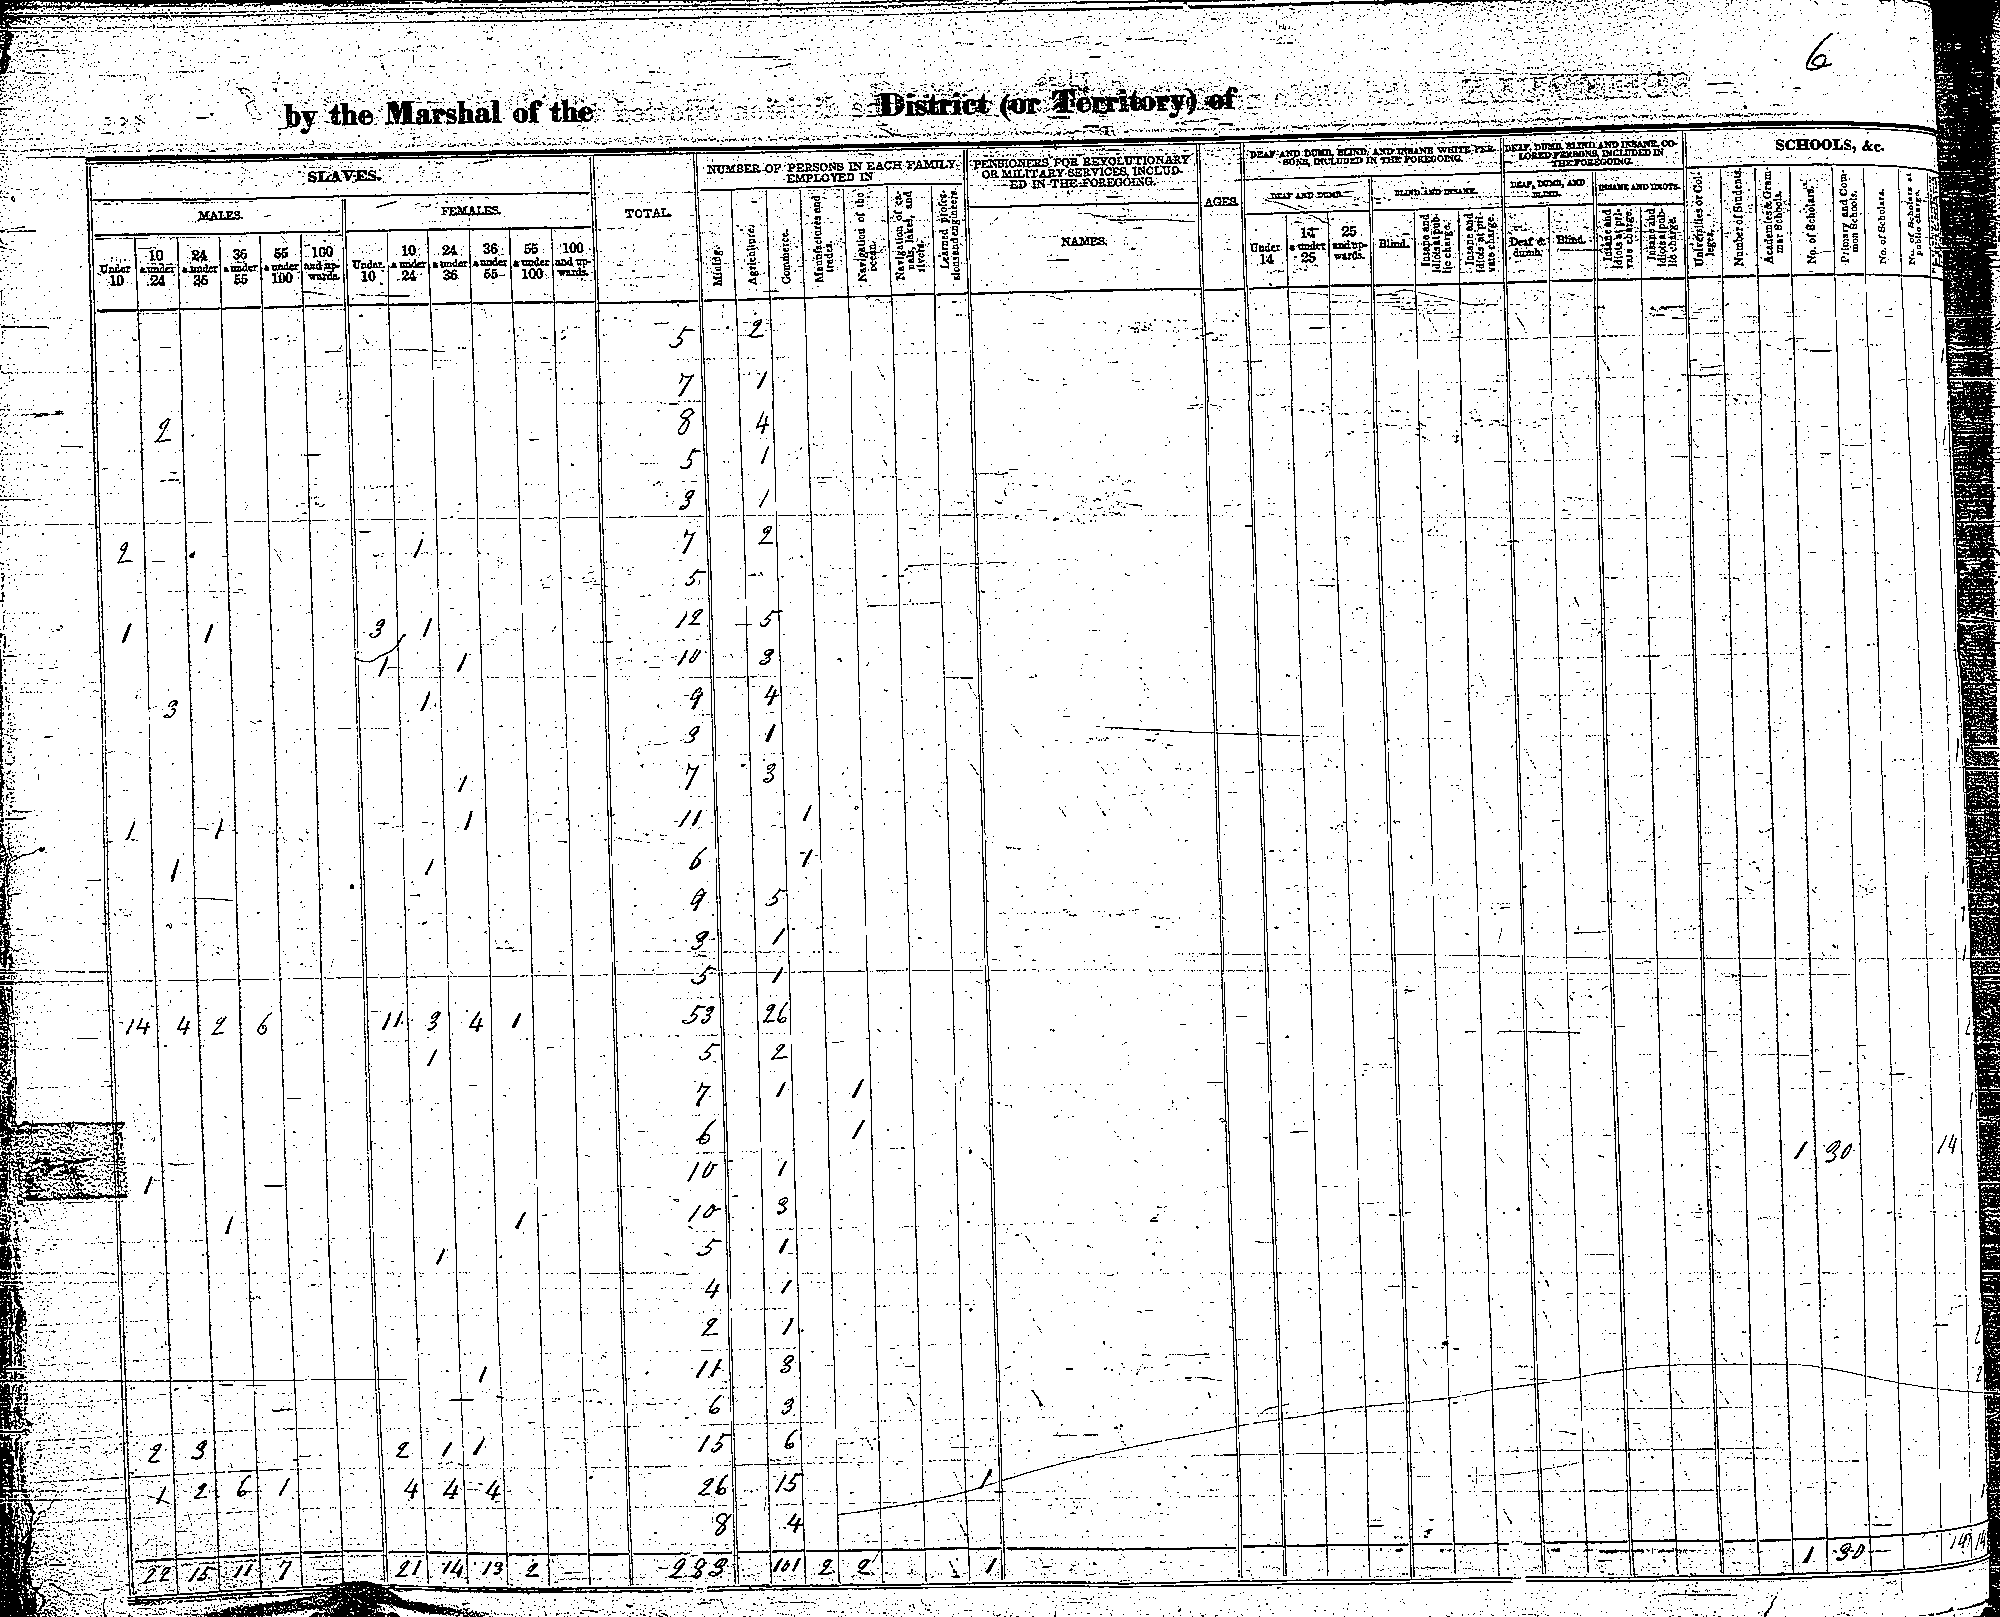 6
by the Marshal of the District (or Territory) of
SLAVES.
TOTAL.
NUMBER OF PERSONS IN EACH FAMILY EMPLOYED IN
PENSIONERS FOR REVOLUTIONARY OR MILITARY SERVICES, INCLUDED IN THE FOREGOING.
AGES.
DEAF AND DUMB, BLIND, AND INSANE WHITE PERSONS, INCLUDED IN THE FOREGOING.
DEAF, DUMB, BLIND AND INSANE COLORED PERSONS, INCLUDED IN THE FOREGOING.
SCHOOLS, &c.
MALES. FEMALES.
Under 10 10 & under 24 24 & under 36 36 & under 55 55 & under 100 100 and upwards.
Under 10 10 & under 24 24 & under 36 36 & under 55 55 & under 100 100 and upwards.
Mining. Agriculture. Commerce. Manufactures and trades. Navigation of the ocean. Navigation of canals, lakes, and rivers. Learned professions and engineers.
NAMES.
DEAF AND DUMB. BLIND AND INSANE.
Under 14 14 & under 25 25 and upwards. Blind. Insane and idiots at public charge. Insane and idiots at private charge.
DEAF, DUMB, AND BLIND. INSANE AND IDIOTS.
Deaf & dumb. Blind. Insane and idiots at private charge. Insane and idiots at public charge.
Universities or Colleges. Number of Students. Academies & Grammar Schools. No. of Scholars. Primary and Common Schools. No. of Scholars. No. of Scholars at public charge.
5 2
7 1
2 8 4
5 1
3 1
2 1 7 2
5
1 1 3 1 12 5
1 1 10 3
3 1 9 4
3 1
1 7 3
1 1 1 11 1
1 1 6 1
9 5
3 1
5 1
14 4 2 6 11 3 4 1 53 26
1 5 2
7 1 1
6 1 1 30 14
1 10 1
1 1 10 3
1 5 1
4 1
2 1
1 11 3
6 3
2 3 2 1 1 15 6
1 2 6 1 4 4 4 26 15 1
8 4
22 15 11 7 21 14 13 2 283 101 2 2 1 1 30